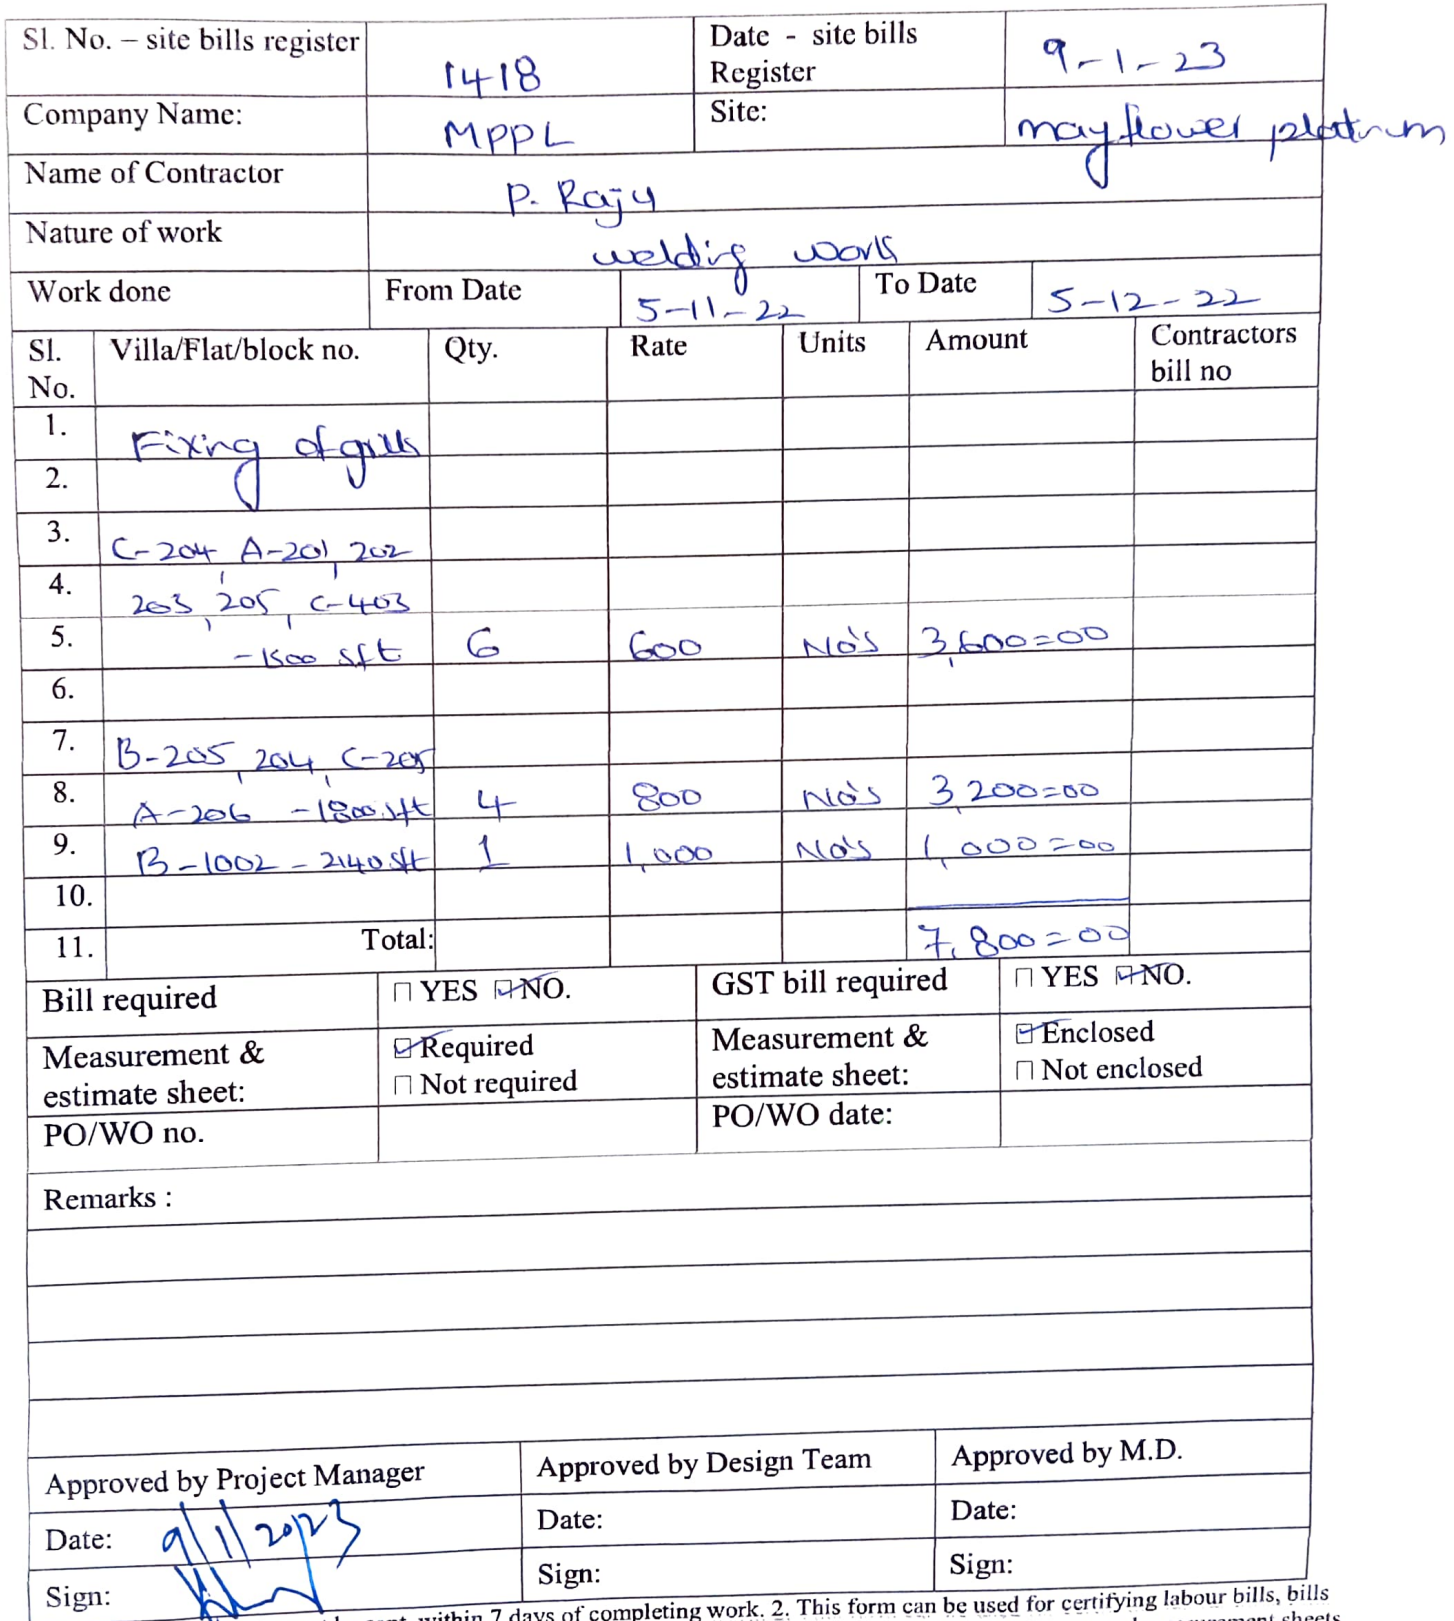 Sl. No. – site bills register 1418 Date - site bills Register 9-1-23
Company Name: MPPL Site: mayflower platinum
Name of Contractor P. Raju
Nature of work welding work
Work done From Date 5-11-22 To Date 5-12-22
Sl. No. Villa/Flat/block no. Qty. Rate Units Amount Contractors bill no
1. Fixing of grills
2.
3. C-204, A-201, 202
4. 203, 205, C-403
5. -1500 sft 6 600 No's 3,600=00
6.
7. B-205, 204, C-205
8. A-206 -1800 sft 4 800 No's 3,200=00
9. B-1002 - 2140 sft 1 1,000 No's 1,000=00
10.
11. Total: 7,800=00
Bill required ☐ YES ☑ NO. GST bill required ☐ YES ☑ NO.
Measurement & ☑ Required Measurement & ☑ Enclosed
estimate sheet: ☐ Not required estimate sheet: ☐ Not enclosed
PO/WO no. PO/WO date:
Remarks :
Approved by Project Manager Approved by Design Team Approved by M.D.
Date: 9/1/2023 Date: Date:
Sign: Sign: Sign:
within 7 days of completing work. 2. This form can be used for certifying labour bills, bills
sheets